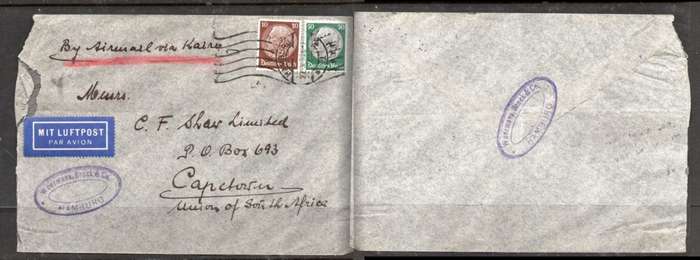 By Airmail via Kairo
10
50
Deutsches Reich
Messrs.
MIT LUFTPOST
PAR AVION
C. F. Shaw Limited
P. O. Box 693
Capetown
Union of South Africa
HAMBURG
HAMBURG